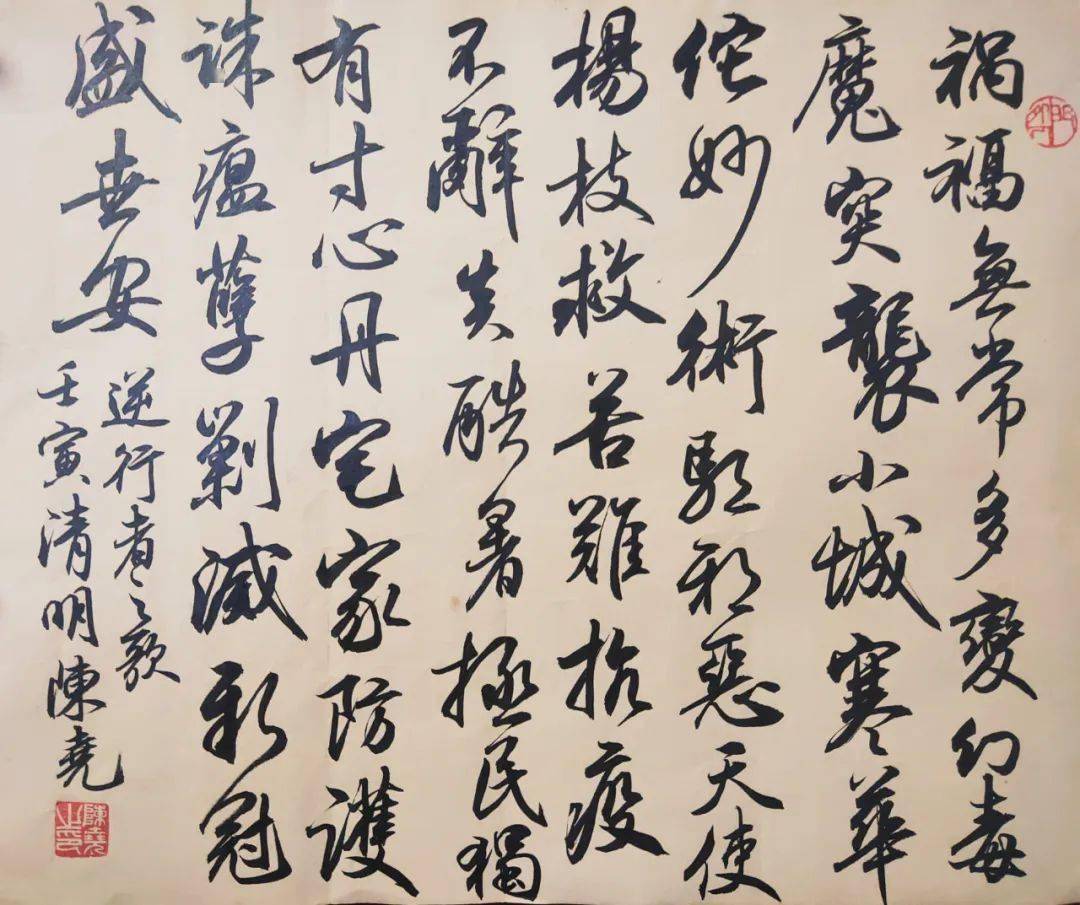 祸福無常多變幻毒
魔突襲小城寒華
佗妙術驅邪惡天使
楊枝救苦難抗疫
不辭炎酷暑拯民獨
有寸心丹宅家防護
誅瘟孽剿滅新冠
盛世安
逆行者之歌
壬寅清明陳堯
陳堯之印